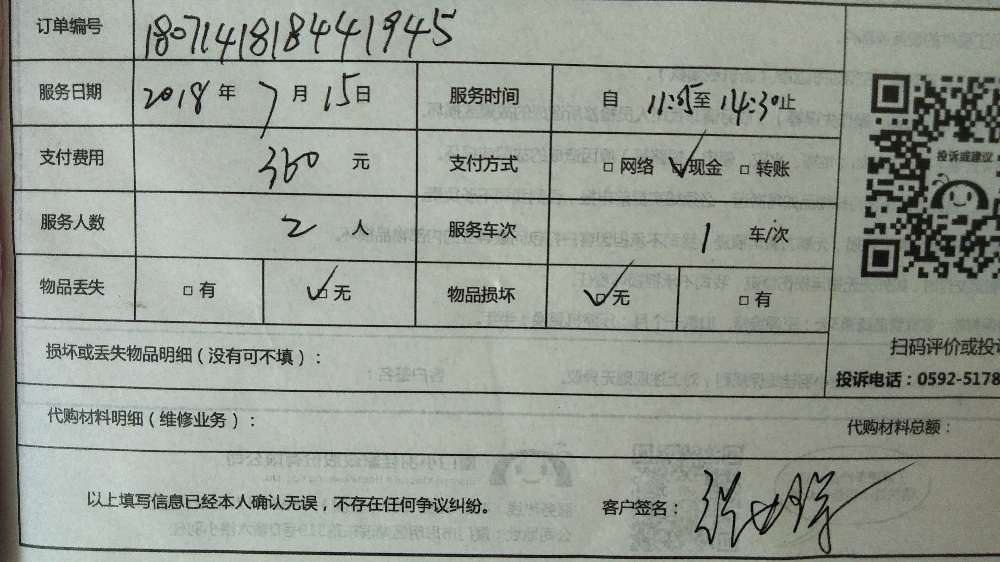 订单编号 180714181844１945
服务日期 2018年7月15日 服务时间 自11:05至14:30止
支付费用 360元 支付方式 □网络 ☑现金 □转账
服务人数 2人 服务车次 1车/次
物品丢失 □有 ☑无 物品损坏 ☑无 □有
投诉或建议
损坏或丢失物品明细（没有可不填）：
扫码评价或投
投诉电话：0592-5178
代购材料明细（维修业务）：
代购材料总额：
以上填写信息已经本人确认无误，不存在任何争议纠纷。
客户签名：